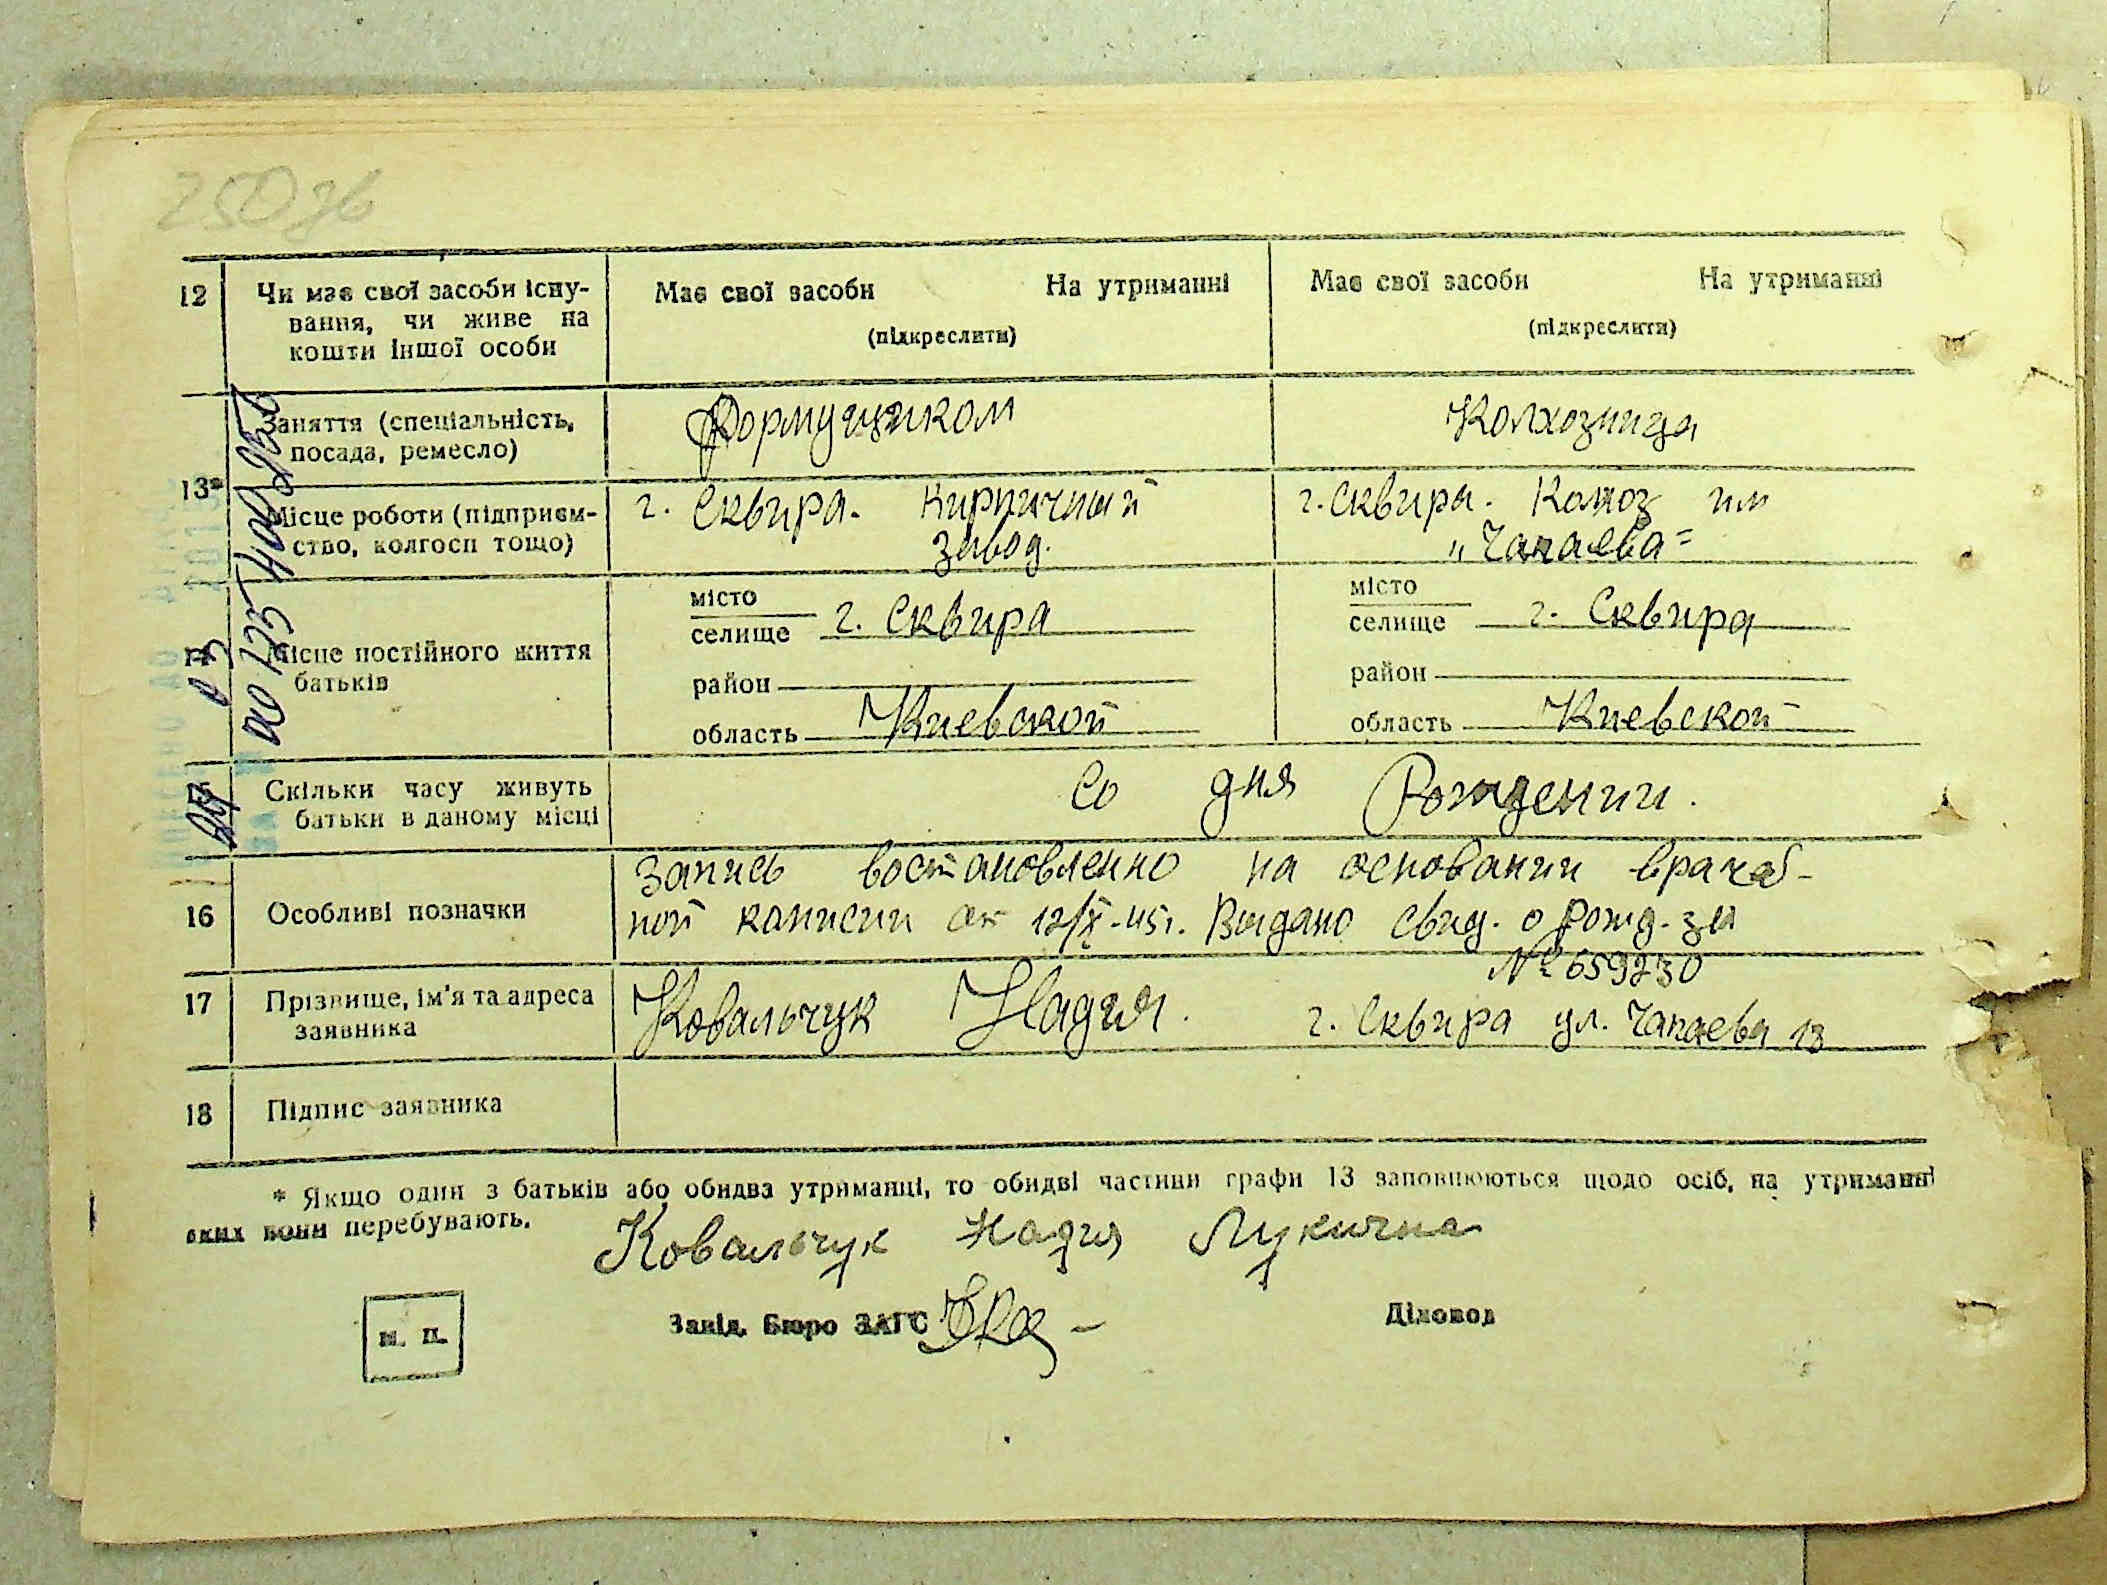 250 зв
12 Чи має свої засоби існу- Має свої засоби На утриманні Має свої засоби На утриманні
вання, чи живе на (підкреслити) (підкреслити)
кошти іншої особи
13* Заняття (спеціальність, Формущиком Колхозница
посада, ремесло)
Місце роботи (підприєм- г. Сквира. Кирпичный г. Сквиры. Колхоз им
ство, колгосп тощо) завод. „Чапаева"
Місце постійного життя місто місто
батьків селище г. Сквира селище г. Сквира
район район
область Киевской область Киевской
15 Скільки часу живуть Со дня Рождении.
батьки в даному місці
16 Особливі позначки Запись востановленно на основании врачеб-
ной комисии от 12/X-45г. Выдано свид. о рожд. за
№ 659230
17 Прізвище, ім'я та адреса Ковальчук Надия. г. Сквира ул. Чапаева 13
заявника
18 Підпис заявника
* Якщо один з батьків або обидва утриманці, то обидві частини графи 13 заповнюються щодо осіб, на утриманні
яких вони перебувають.
Ковальчук Надия Лукична
м. п. Завід. Бюро ЗАГС Діловод